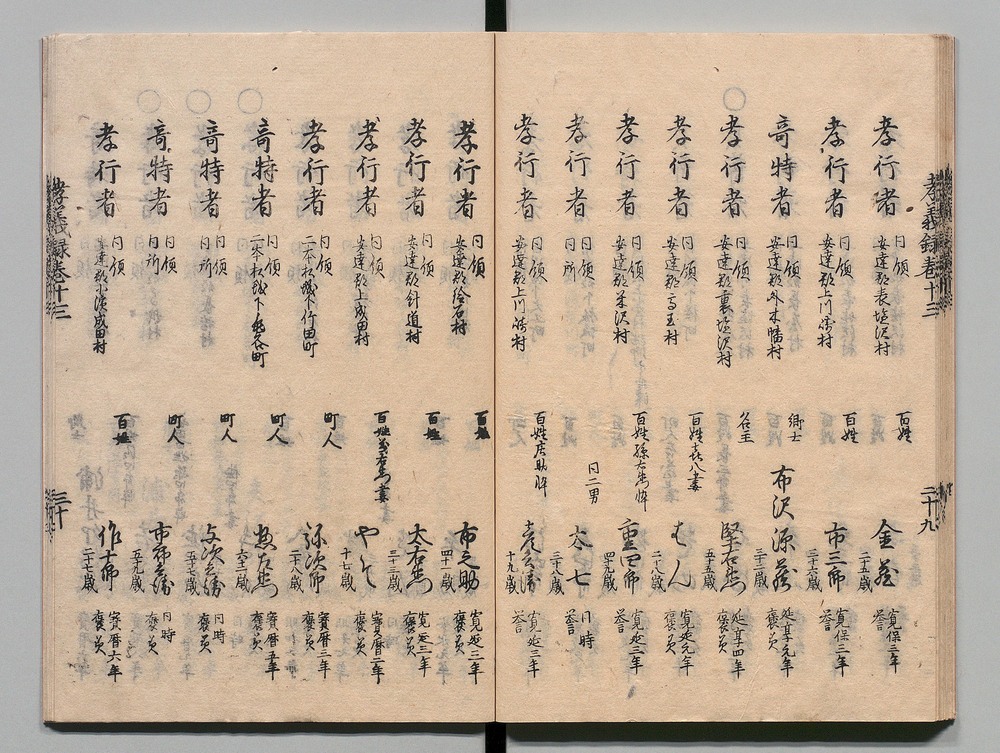 孝義録巻十三
二十九
孝行者 同領 安達郡表塩沢村 百姓 金蔵 二十五歳 寛保三年 誉
孝行者 同領 安達郡上川崎村 百姓 市三郎 二十六歳 寛保三年 誉
奇特者 同領 安達郡外木幡村 郷士 布沢源蔵 三十三歳 延享元年 褒美
○孝行者 同領 安達郡裏塩沢村 名主 堅右衛門 五十五歳 延享四年 褒美
孝行者 同領 安達郡高玉村 百姓喜八妻 はん 二十八歳 寛延元年 褒美
孝行者 同領 安達郡苗沢村 百姓孫右衛門忰 重四郎 四十九歳 寛延三年 誉
孝行者 同領 同所 同二男 太七 三十九歳 同時 誉
孝行者 同領 安達郡上川崎村 百姓庄助忰 十九歳 寛延三年 誉
孝行者 同領 安達郡給石村 百姓 布之助 四十一歳 寛延二年 褒美
孝行者 同領 安達郡針道村 百姓 太右衛門 三十三歳 寛延三年 褒美
孝行者 同領 安達郡上成田村 百姓 妻 やす 十七歳 宝暦二年 褒美
孝行者 同領 二本松城下竹田町 町人 弥次郎 二十八歳 宝暦三年 褒美
○奇特者 同領 二本松城下亀谷町 町人 惣左衛門 六十二歳 宝暦五年 褒美
○奇特者 同領 同所 町人 与次兵衛 同時 褒美
○奇特者 同領 同所 町人 市郎兵衛 五十九歳 同時 褒美
孝行者 同領 安達郡 成田村 百姓 作十郎 二十七歳 宝暦六年 褒美
孝義録巻十三
三十